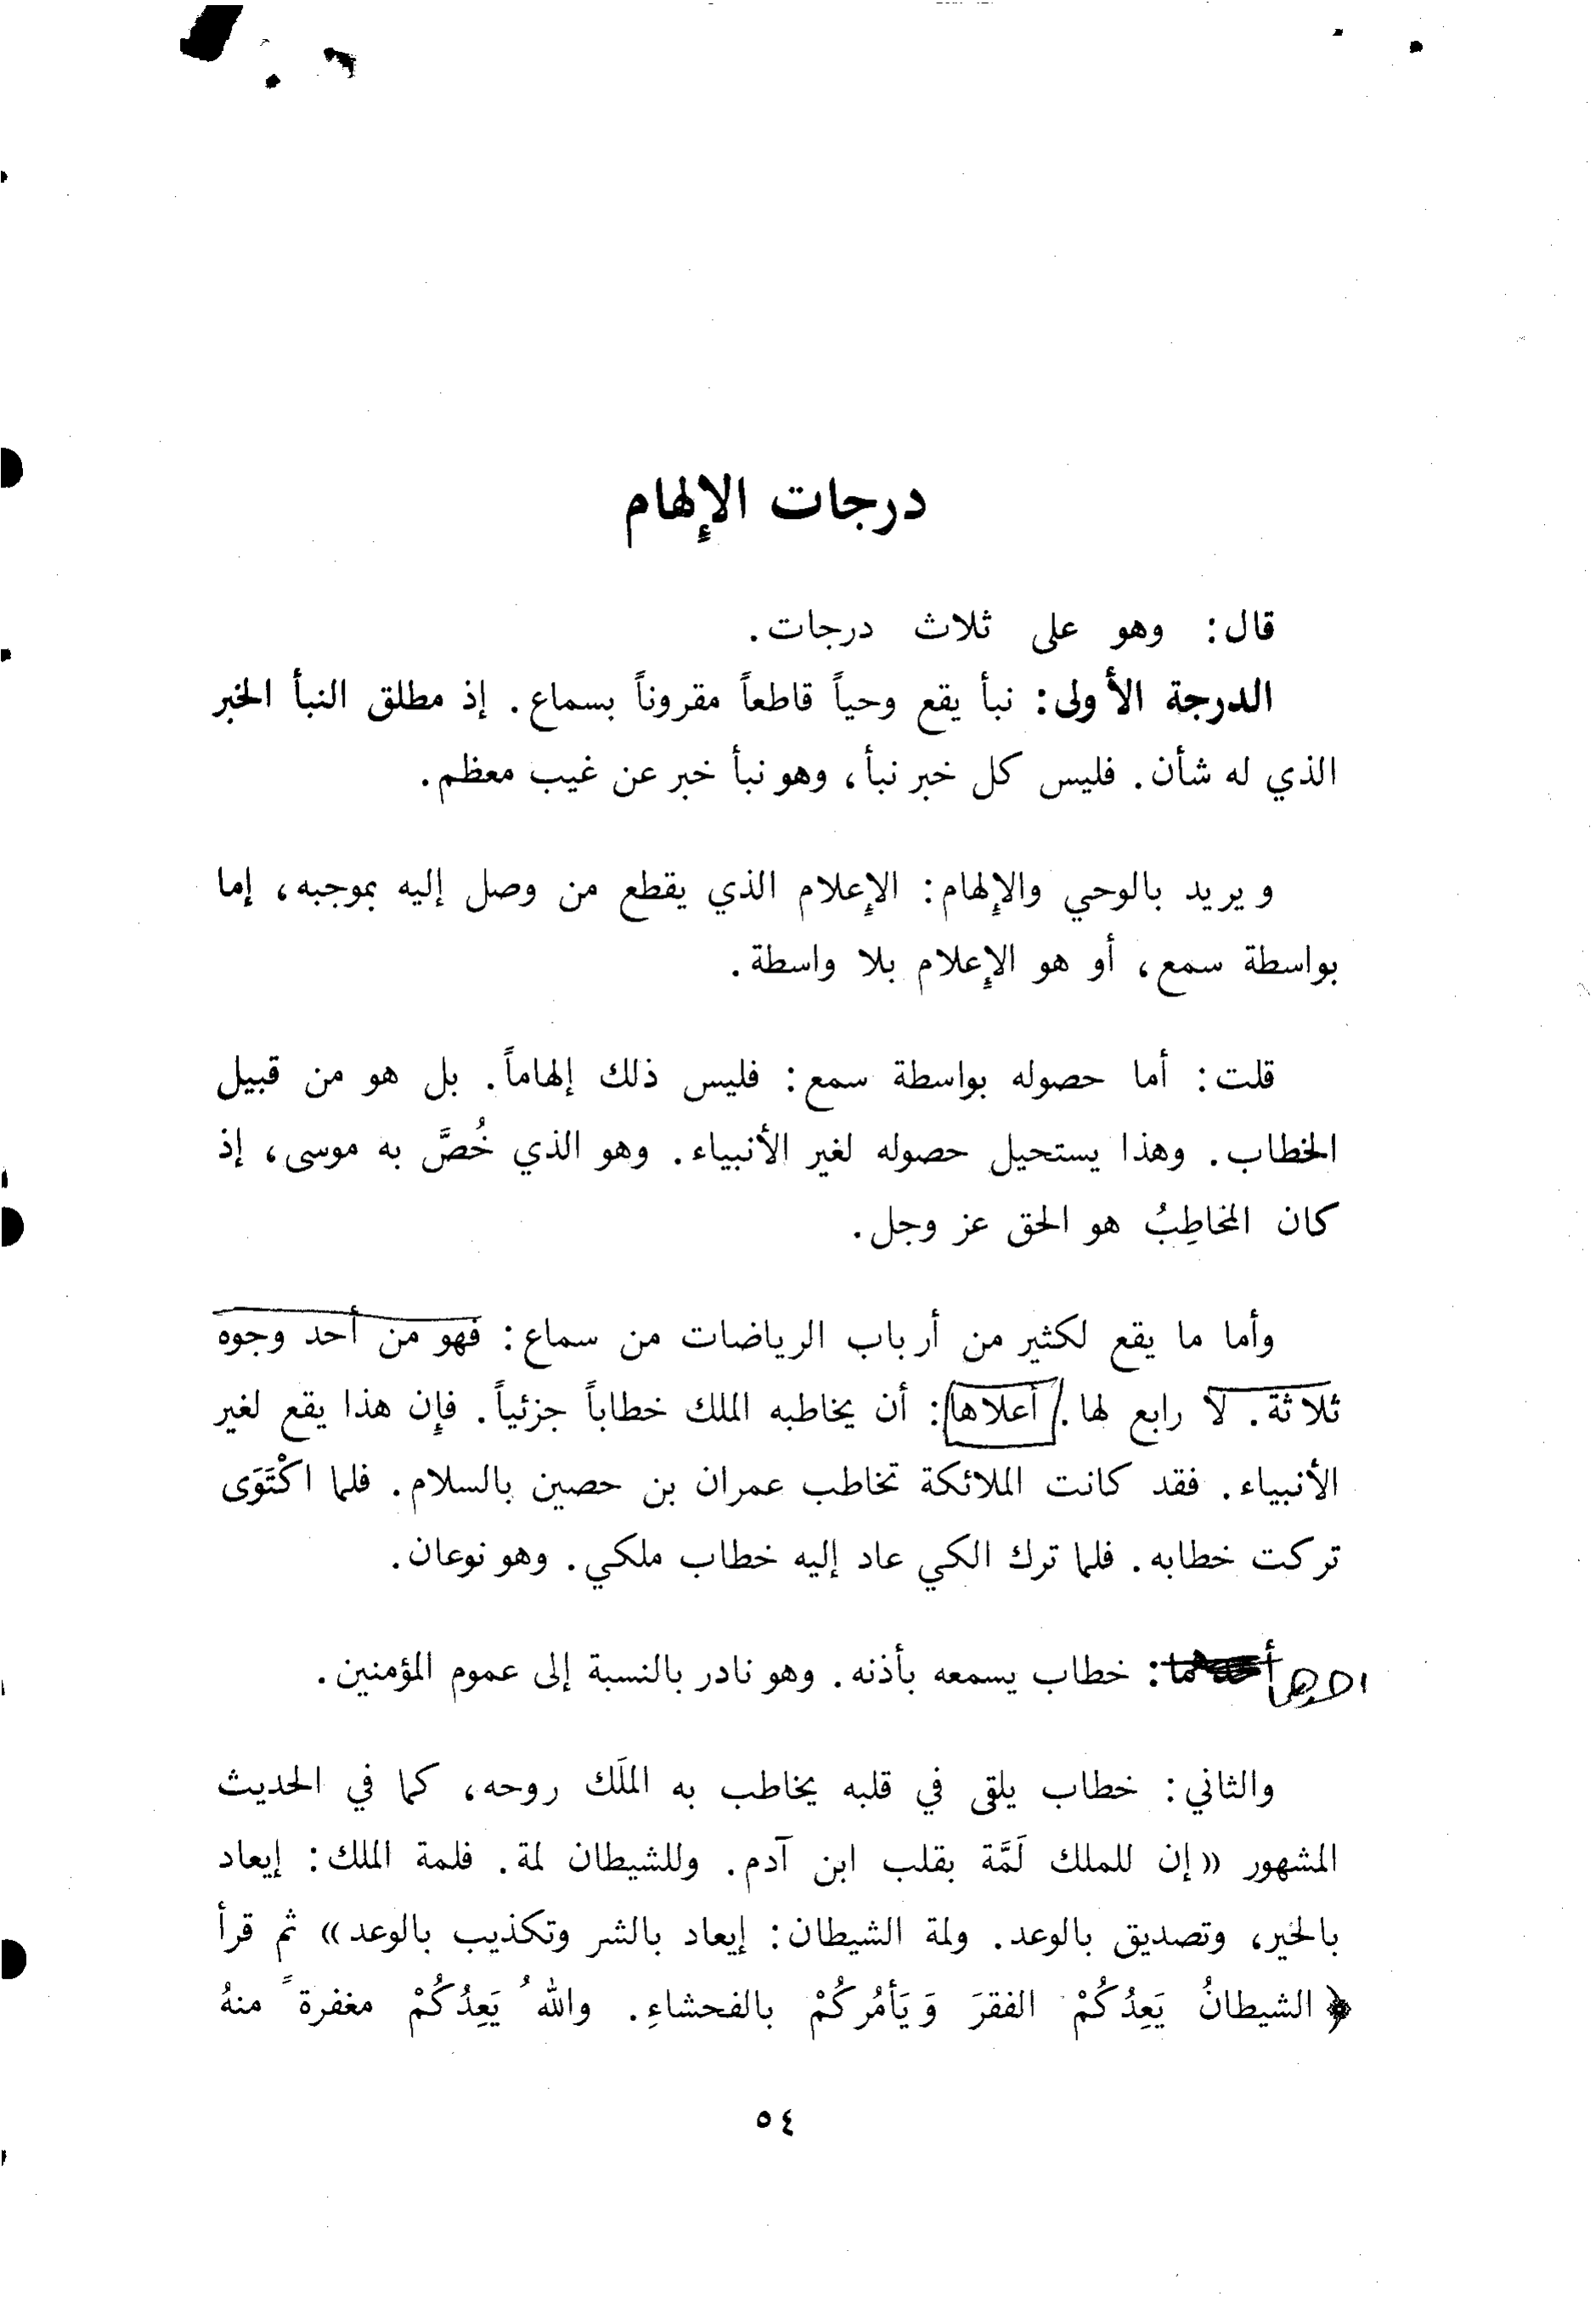 درجات الإلهام
قال: وهو على ثلاث درجات.
الدرجة الأولى: نبأ يقع وحياً قاطعاً مقروناً بسماع. إذ مطلق النبأ الخبر
الذي له شأن. فليس كل خبر نبأ، وهو نبأ خبر عن غيب معظم.
ويريد بالوحي والإلهام: الإعلام الذي يقطع من وصل إليه بموجبه، إما
بواسطة سمع، أو هو الإعلام بلا واسطة.
قلت: أما حصوله بواسطة سمع: فليس ذلك إلهاماً. بل هو من قبيل
الخطاب. وهذا يستحيل حصوله لغير الأنبياء. وهو الذي خُصَّ به موسى، إذ
كان المخاطِبُ هو الحق عز وجل.
وأما ما يقع لكثير من أرباب الرياضات من سماع: فهو من أحد وجوه
ثلاثة. لا رابع لها. أعلاها: أن يخاطبه الملك خطاباً جزئياً. فإن هذا يقع لغير
الأنبياء. فقد كانت الملائكة تخاطب عمران بن حصين بالسلام. فلما اكْتَوَى
تركت خطابه. فلما ترك الكي عاد إليه خطاب ملكي. وهو نوعان.
أحدهما: خطاب يسمعه بأذنه. وهو نادر بالنسبة إلى عموم المؤمنين.
والثاني: خطاب يلقى في قلبه يخاطب به الملَك روحه، كما في الحديث
المشهور «إن للملك لَمَّة بقلب ابن آدم. وللشيطان لمة. فلمة الملك: إيعاد
بالخير، وتصديق بالوعد. ولمة الشيطان: إيعاد بالشر وتكذيب بالوعد» ثم قرأ
﴿الشيطانُ يَعِدُكُمْ الفقرَ وَيَأمُركُمْ بالفحشاءِ. واللهُ يَعِدُكُمْ مغفرةً منهُ
٥٤